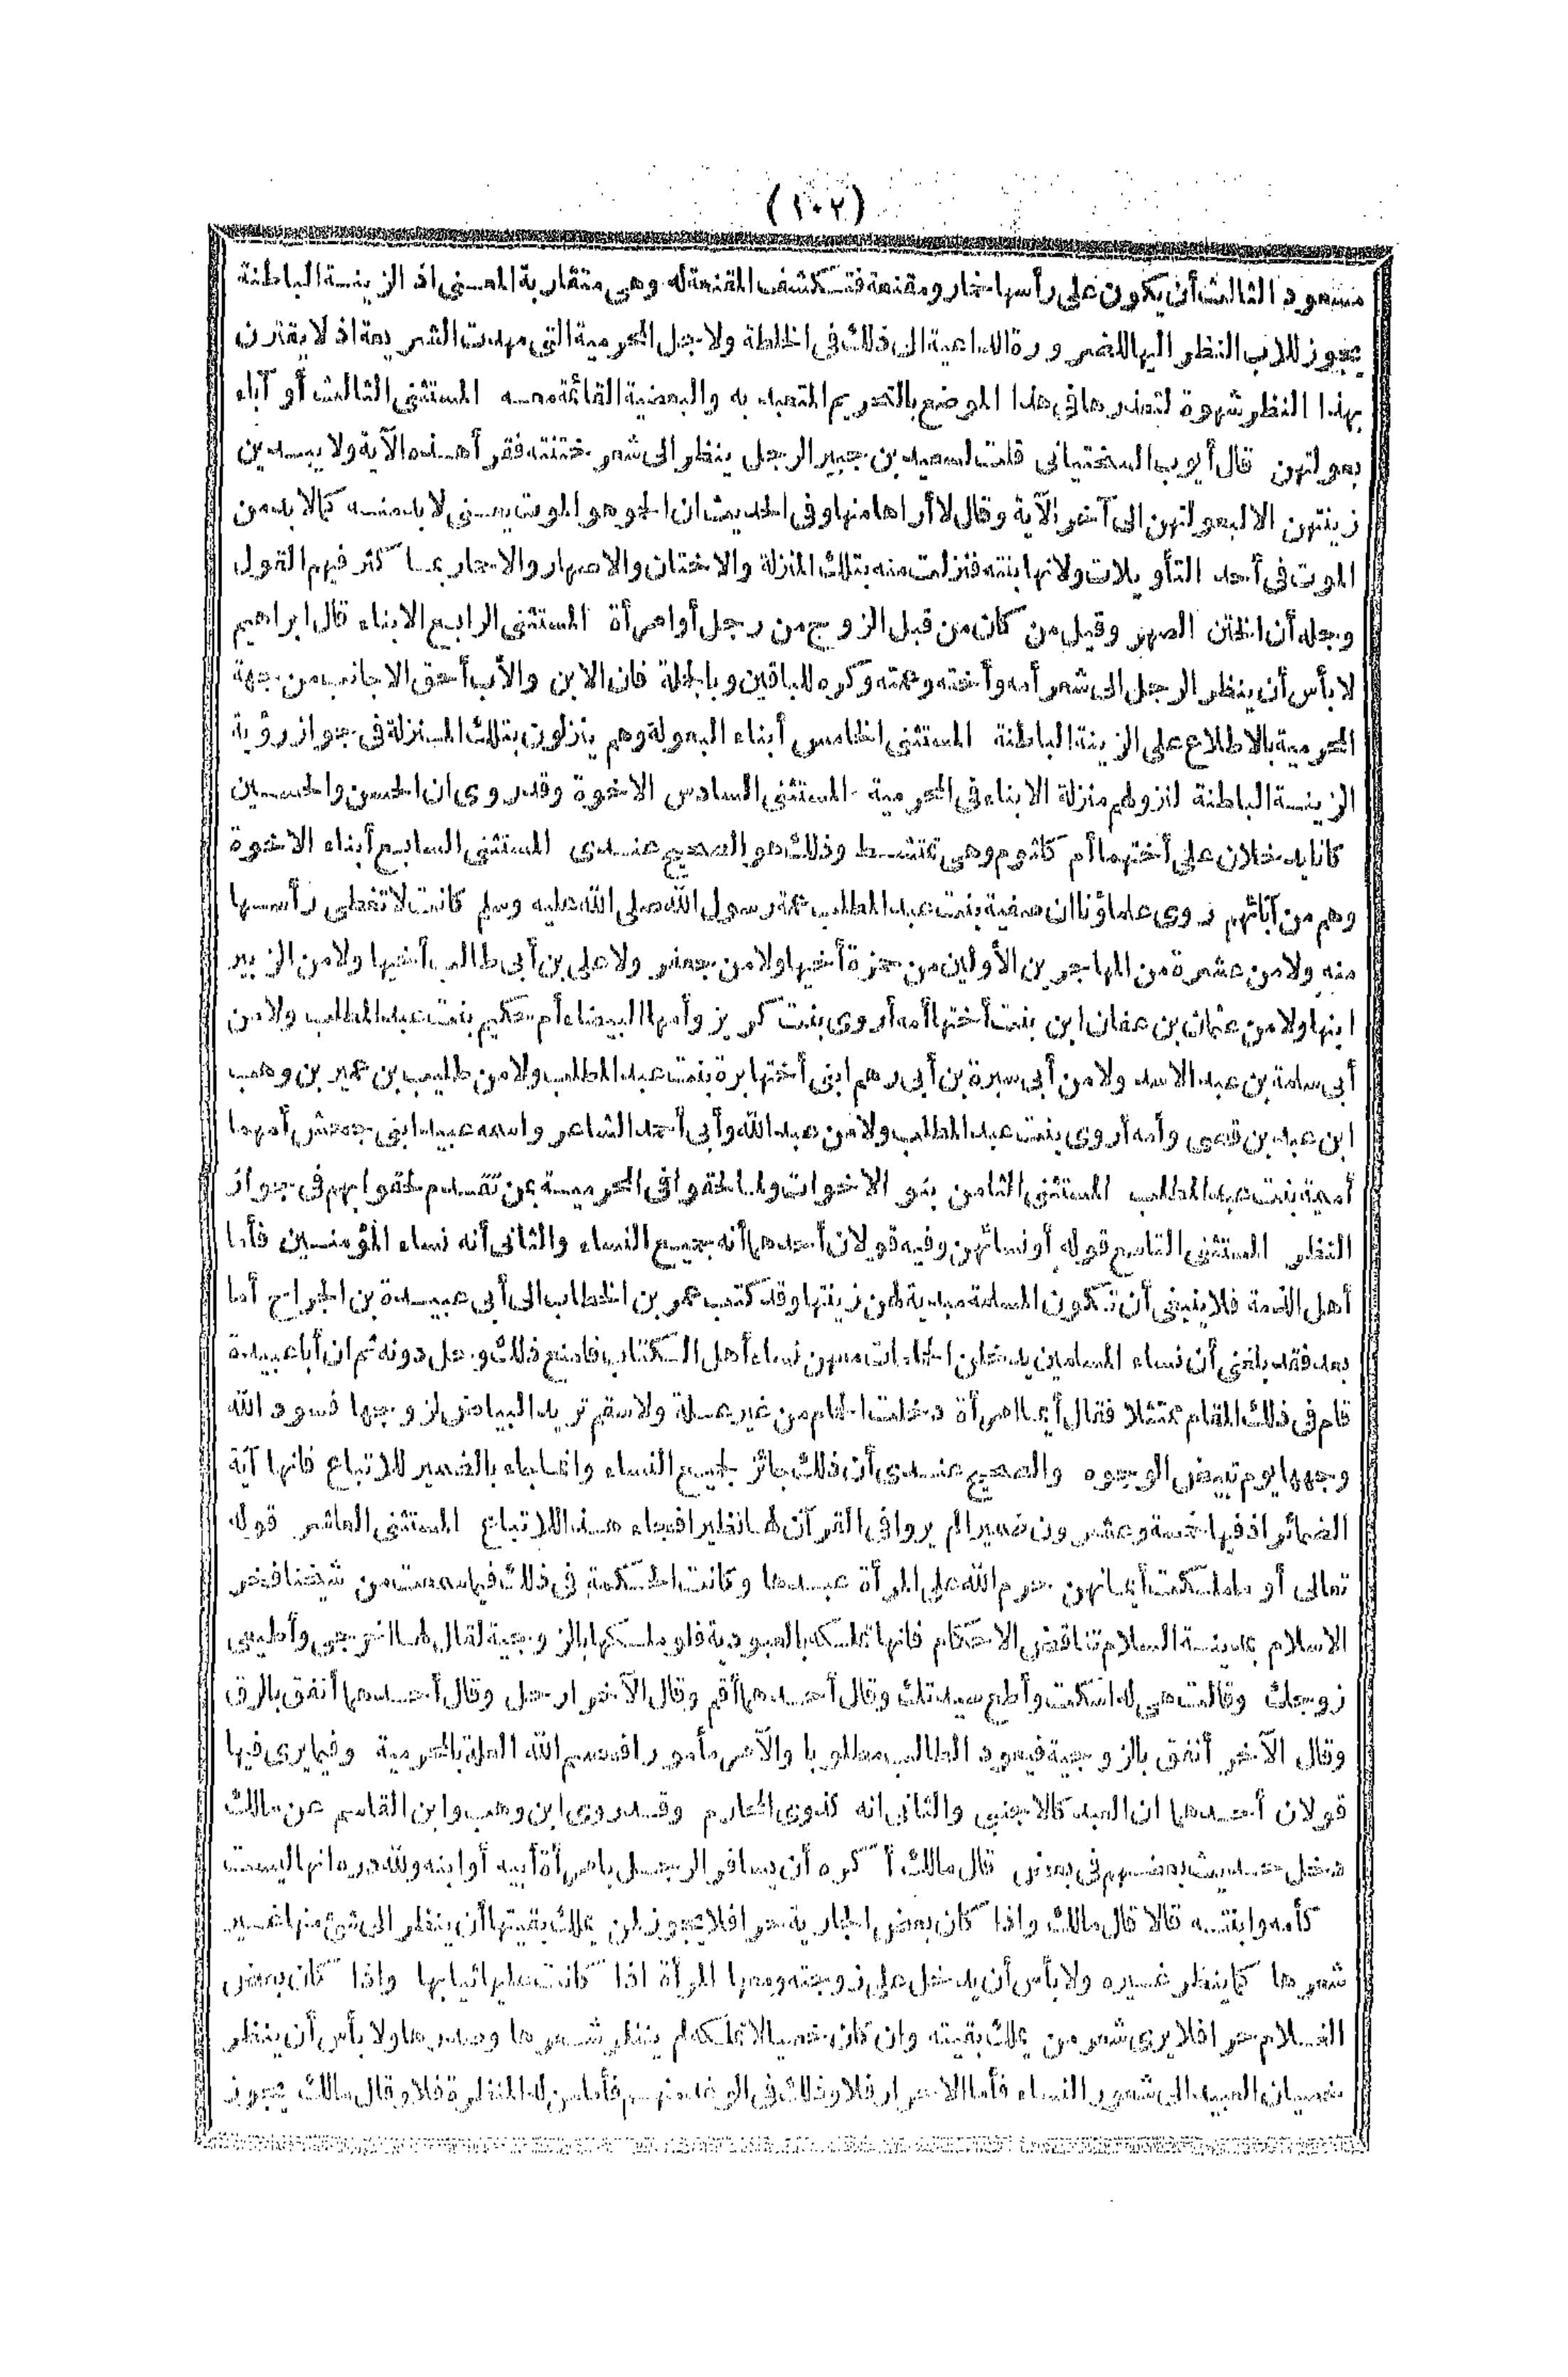 (١٠٢)
مسعود الثالث أن يكون على رأسها خمار ومقنعة فتكشف المقنعة له وهى متقاربة المعنى اذ الزينة الباطنة
يجوز للاب النظر اليها للضرورة الداعية الى ذلك فى الخلطة ولاجل المحرمية التى مهدت الشريعة اذ لا يقترن
بهذا النظر شهوة لتعذرها فى هذا الموضع بالتحريم المتعبد به والبعضية القائمة معه المستثنى الثالث أو آباء
بعولتهن قال أيوب السختيانى قلت لسعيد بن جبير الرجل ينظر الى شعر ختنته فقرأ هذه الآية ولا يبدين
زينتهن الا لبعولتهن الى آخر الآية وقال لا أراها منها وفى الحديث ان الحمو هو الموت يعنى لا بد منه كما لا بد من
الموت فى أحد التأويلات ولانها ابنته فنزلت منه بتلك المنزلة والاختان والاصهار والاحماء كثر فيهم القول
وجله أن الختن الصهر وقيل من كان من قبل الزوج من رجل أو امرأة المستثنى الرابع الابناء قال ابراهيم
لا بأس أن ينظر الرجل الى شعر أمه وأخته وعمته وكره للباقين وبالجلة فان الابن والأب أحق الاجانب من جهة
المحرمية بالاطلاع على الزينة الباطنة المستثنى الخامس أبناء البعولة وهم ينزلون بتلك المنزلة فى جواز رؤية
الزينة الباطنة لنزولهم منزلة الابناء فى المحرمية المستثنى السادس الاخوة وقد روى ان الحسن والحسين
كانا يدخلان على أختهما أم كلثوم وهى تمتشط وذلك هو الصحيح عندى المستثنى السابع أبناء الاخوة
وهم من آبائهم روى علماؤنا ان صفية بنت عبد المطلب عمة رسول الله صلى الله عليه وسلم كانت لا تغطى رأسها
منه ولا من عشرة من المهاجرين الأولين من حمزة أخيها ولا من جعفر ولا على بن أبى طالب أخيها ولا من الزبير
ابنها ولا من عثمان بن عفان ابن بنت أختها أمه أروى بنت كريز وأمها البيضاء أم حكيم بنت عبد المطلب ولا من
أبى سلمة بن عبد الاسد ولا من أبى سبرة بن أبى رهم ابنى أختها برة بنت عبد المطلب ولا من طليب بن عمير بن وهب
ابن عبد بن قصى وأمه أروى بنت عبد المطلب ولا من عبد الله وأبى أحمد الشاعر واسمه عبيد ابنى جحش أمهما
أميمة بنت عبد المطلب المستثنى الثامن بنو الاخوات ولما لحقوا فى المحرمية بمن تقدم لحقوا بهم فى جواز
النظر المستثنى التاسع قوله أو نسائهن وفيه قولان أحدهما أنه جميع النساء والثانى أنه نساء المؤمنين فأما
أهل الذمة فلا ينبغى أن تكون المسلمة مبدية لهن زينتها وقد كتب عمر بن الخطاب الى أبى عبيدة بن الجراح أما
بعد فقد بلغنى أن نساء المسلمين يدخلن الحمامات معهن نساء أهل الكتاب فامنع ذلك وحل دونه ثم ان أبا عبيدة
قام فى ذلك المقام ممتثلا فقال أيما امرأة دخلت الحمام من غير علة ولا سقم تريد البياض لزوجها فسود الله
وجهها يوم تبيض الوجوه والصحيح عندى أن ذلك جائز لجميع النساء وانما جاء بالضمير للاتباع فانها آية
الضمائر اذ فيها خمسة وعشرون ضميرا لم يروا فى القرآن لها نظيرا فجاء هذا للاتباع المستثنى العاشر قوله
تعالى أو ما ملكت أيمانهن حرم الله على المرأة عبدها وكانت الحكمة فى ذلك فيما سمعت من شيخنا فخر
الاسلام بمدينة السلام تناقض الاحكام فانها تملكه بالعبودية فلو ملكها بالزوجية لقال لها اخرجى وأطيعى
زوجك وقالت هى له اسكت وأطع سيدتك وقال أحدهما أقم وقال الآخر ارحل وقال أحدهما أنفق بالرق
وقال الآخر أنفق بالزوجية فيعود الطالب مطلوبا والآمر مأمورا فحسم الله العلة بالمحرمية وفيما يرى فيها
قولان أحدهما ان العبد كالاجنبى والثانى انه كذوى المحارم وقد روى ابن وهب وابن القاسم عن مالك
دخل حديث بعضهم فى بعض قال مالك أكره أن يسافر الرجل بامرأة أبيه أو ابنه ولله دره انها ليست
كأمه وابنته قالا قال مالك واذا كان بعض الجارية حرا فلا يجوز لمن يملك بقيتها أن ينظر الى شئ منها غير
شعرها كما ينظر غيره ولا بأس أن يدخل على زوجته ومعها المرأة اذا كانت عليها ثيابها واذا كان بعض
الغلام حرا فلا يرى شعر من يملك بقيته وان كان خصيا لا تملكه لم ينظر شعرها وصدرها ولا بأس أن ينظر
خصيان العبيد الى شعور النساء فأما الاحرار فلا وذلك فى الوغد منهم فأما من له المنظرة فلا وقال مالك يجوز